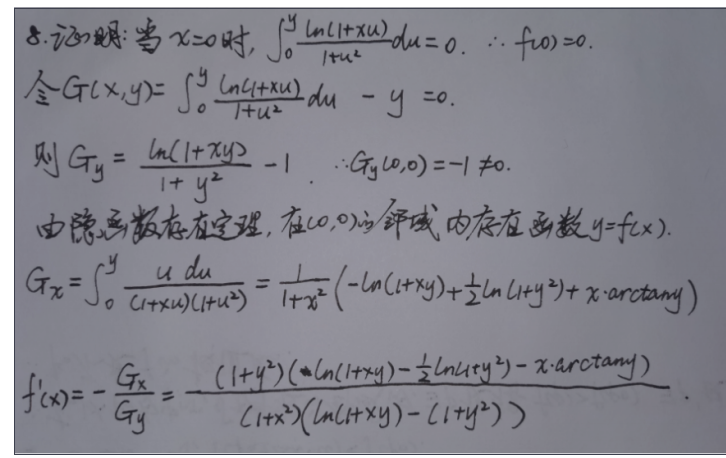 8.证明:当x=0时, ∫₀^y ln(1+xu)/(1+u²) du = 0. ∴ f(0)=0.
令G(x,y)= ∫₀^y ln(1+xu)/(1+u²) du - y = 0.
则 G_y = ln(1+xy)/(1+y²) - 1. ∴G_y(0,0)=-1≠0.
由隐函数存在定理, 在(0,0)的邻域内存在函数y=f(x).
G_x = ∫₀^y u du/((1+xu)(1+u²)) = 1/(1+x²) (-ln(1+xy)+½ln(1+y²)+x·arctany)
f'(x) = - G_x/G_y = - (1+y²)(ln(1+xy)-½ln(1+y²)-x·arctany)/((1+x²)(ln(1+xy)-(1+y²))).